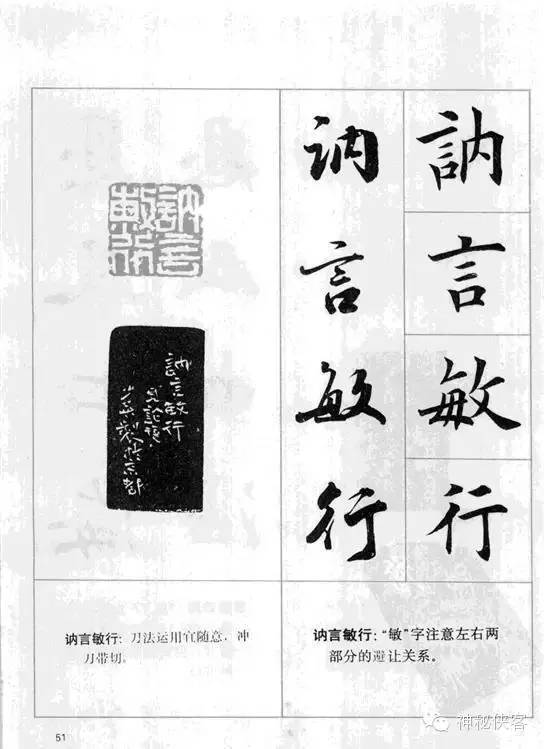 訥
言
敏
行
讷
言
敏
行
訥言
敏行
訥言敏行
見論語
製於京都
讷言敏行：“敏”字注意左右两
部分的避让关系。
讷言敏行：刀法运用宜随意，冲
刀带切。
51
神秘侠客